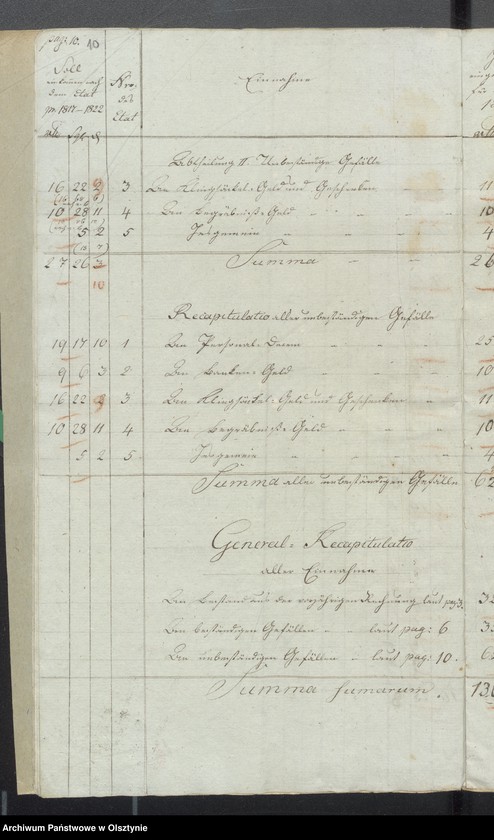 pag. 10. 10
Soll
einkommen nach
dem Etat
pr 1817–1822
Nro.
des
Etat
Einnahme
rtl Sgr. d
Abtheilung II. Unbeständige Gefälle
16 22 3 An Klingsäckel-Geld und Geschenken 11
10 28 11 4 An Begräbniß-Geld 10
5 2 5 Insgemein 4
27 26 Summa 26
10
Recapitulatio aller unbeständigen Gefälle
19 17 10 1 An Personal-Decem 25
9 6 3 2 An Banken-Geld 10
16 22 3 An Klingsäckel-Geld und Geschenken 11
10 28 11 4 An Begräbniß-Geld 10
5 2 5. Insgemein 4
Summa aller unbeständigen Gefälle 62
General-Recapitulatio
aller Einnahme
An Bestand aus der vorjährigen Rechnung laut pag. 3.
An beständigen Gefällen laut pag: 6
An unbeständigen Gefällen laut pag: 10. 62
Summa sumarum. 130
Archiwum Państwowe w Olsztynie